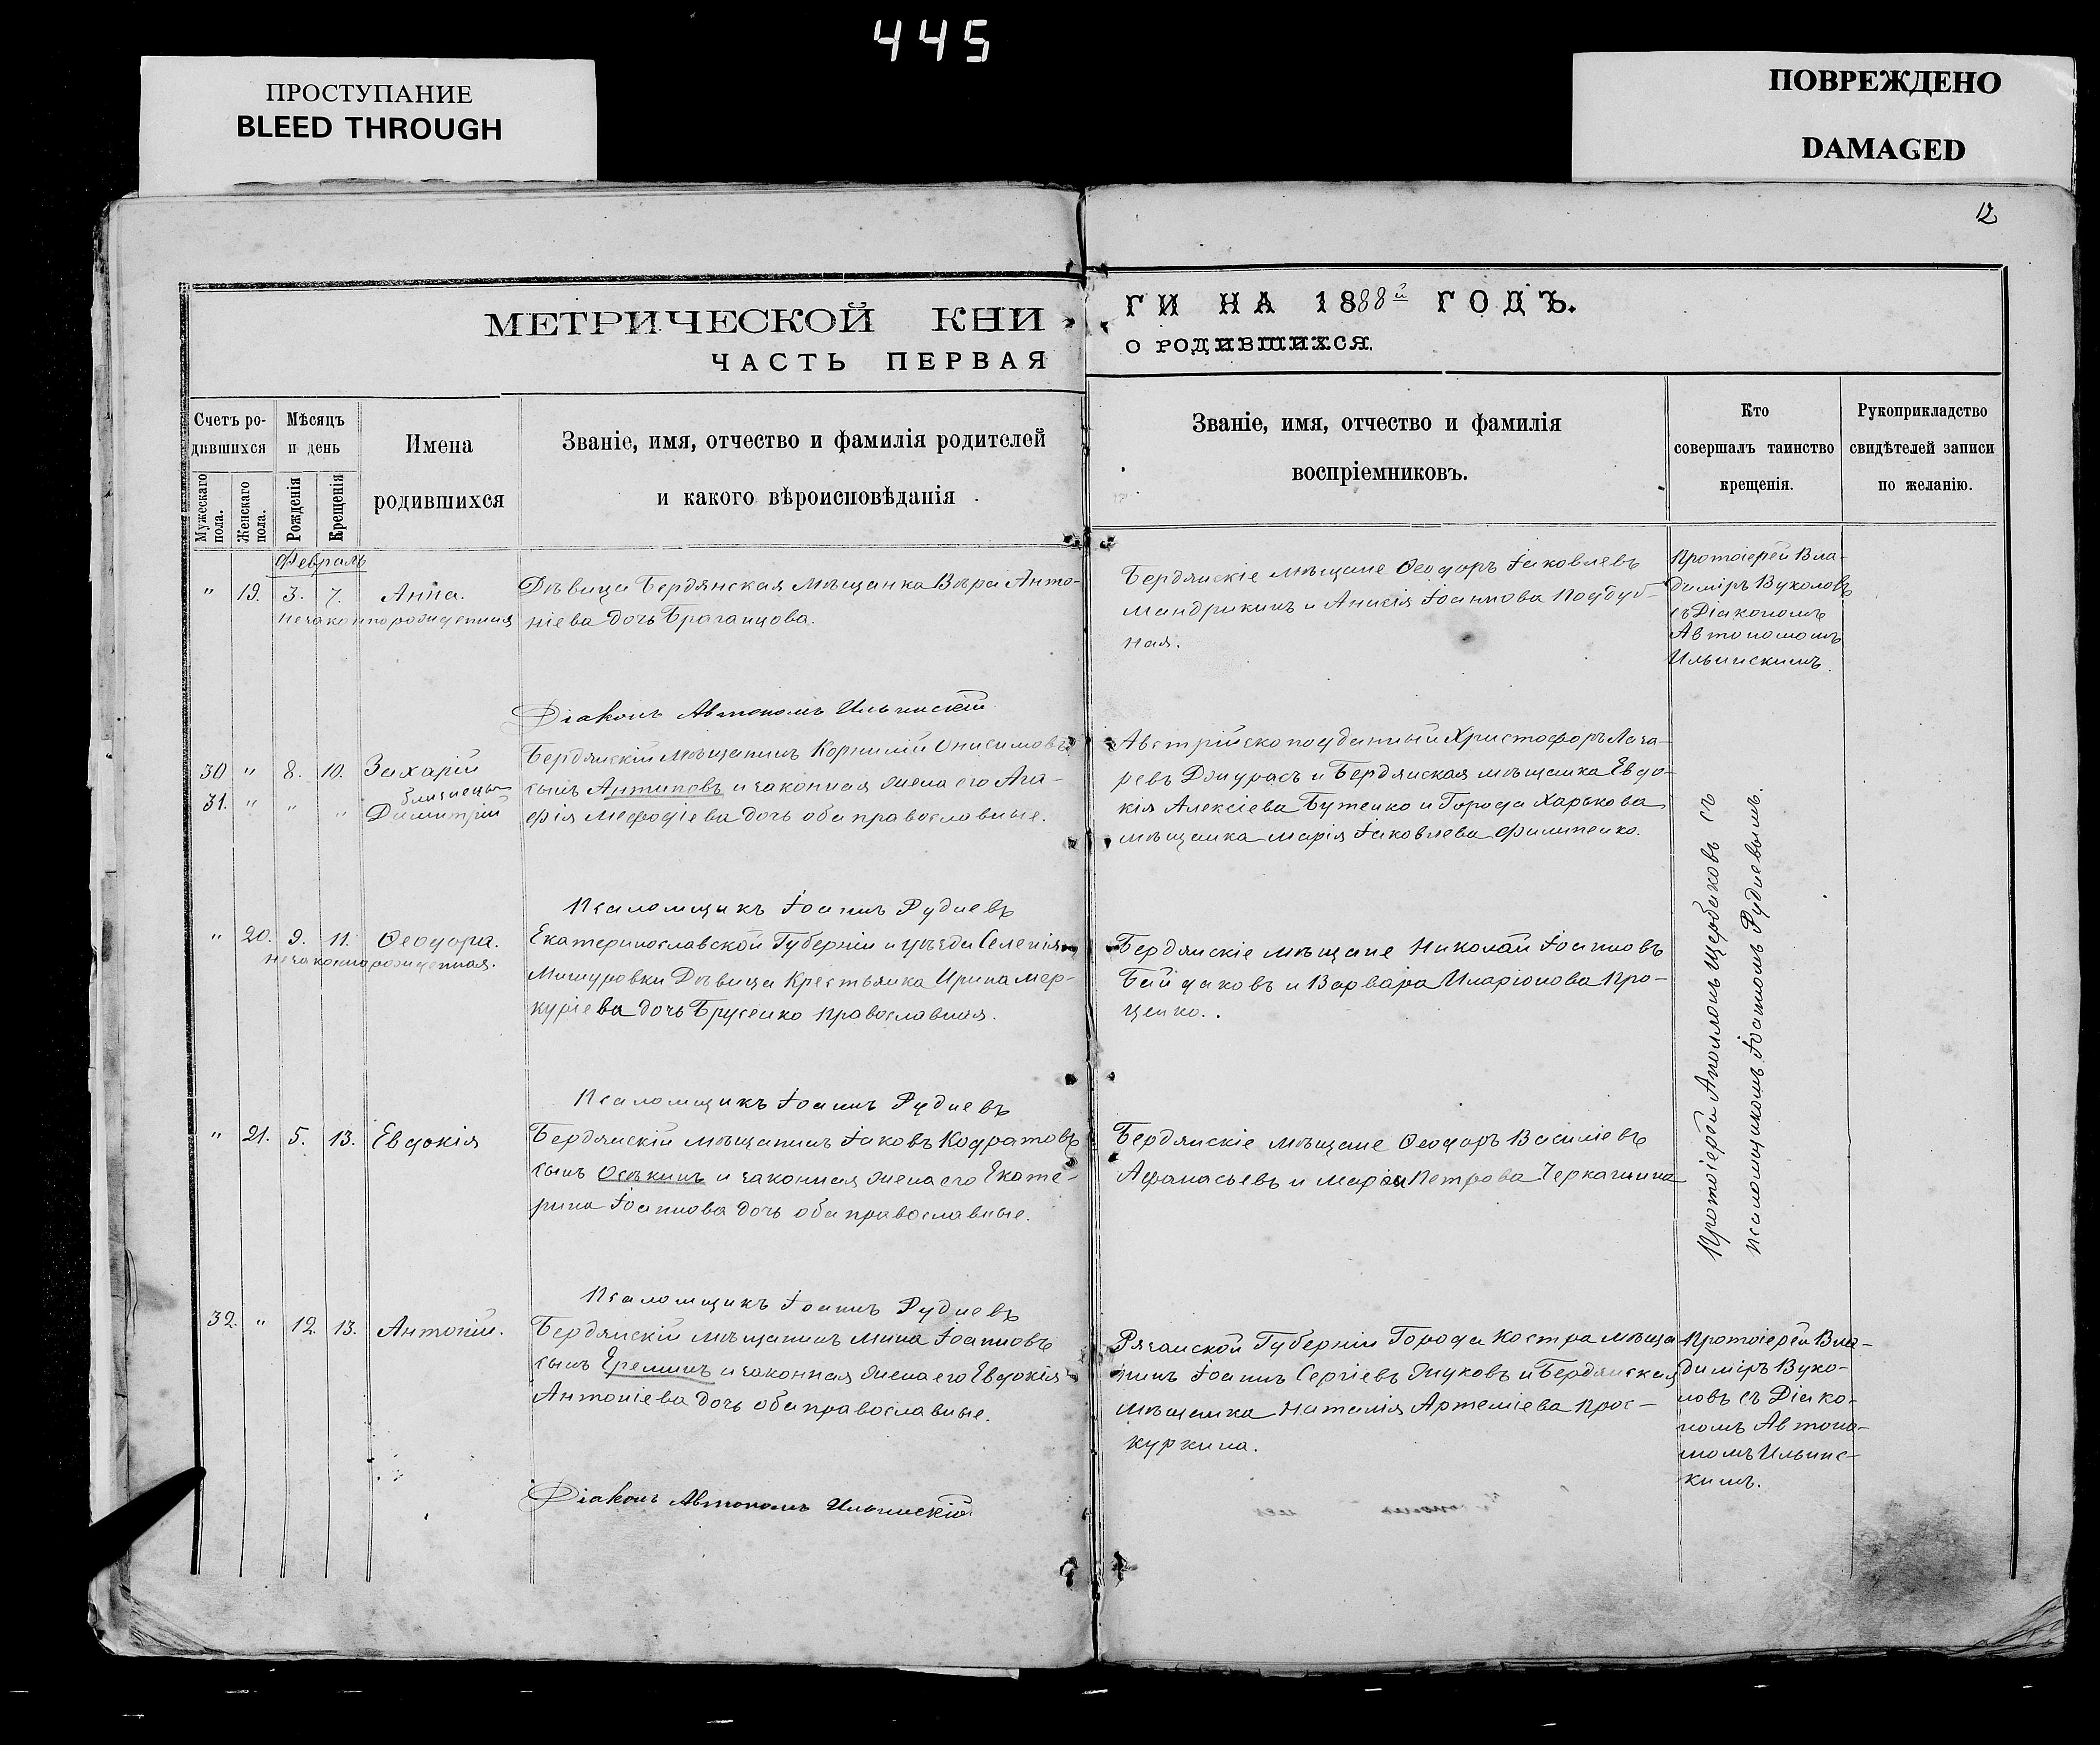 445
ПРОСТУПАНИЕ
BLEED THROUGH
ПОВРЕЖДЕНО
DAMAGED
12
МЕТРИЧЕСКОЙ КНИ
ЧАСТЬ ПЕРВАЯ
ГИ НА 1888й ГОДЪ.
О РОДИВШИХСЯ.
Счетъ ро-
дившихся
Мужескаго пола.
Женскаго пола.
Мѣсяцъ
и день
Рожденія
Крещенія
Имена
родившихся
Званіе, имя, отчество и фамилія родителей
и какого вѣроисповѣданія
Званіе, имя, отчество и фамилія
воспріемниковъ.
Кто
совершалъ таинство
крещенія.
Рукоприкладство
свидѣтелей записи
по желанію.
Февраль
" 19. 3. 7. Анна.
незаконнорожденная
Дѣвица Бердянская Мѣщанка Вѣра Анто-
ніева дочь Браганцова.
Бердянскіе мѣщане Ѳеодоръ Іаковлевъ
Мандрикинъ и Анисія Іоаннова Поддуб-
ная.
Протоіерей Вла-
диміръ Вуколовъ
съ Діакономъ
Автономомъ
Ильинскимъ.
Діаконъ Автономъ Ильинскій
30 " 8. 10. Захарій
близнецы
31. " " " Димитрій
Бердянскій мѣщанинъ Корнилій Онисимовъ
сынъ Антиповъ и законная жена его Ага-
фія Мефодіева дочь оба православные.
Австрійскоподданный Христофоръ Лаза-
ревъ Джурасъ и Бердянская мѣщанка Евдо-
кія Алексіева Бутенко и Города Харькова
мѣщанка Марія Іаковлева Филипенко.
Псаломщикъ Іоаннъ Рудневъ
" 20. 9. 11. Ѳеодора.
незаконнорожденная.
Екатеринославской Губерніи и уѣзда Селенія
Мишуровки Дѣвица Крестьянка Ирина Мер-
куріева дочь Брусенко православная.
Бердянскіе мѣщане Николай Іоанновъ
Байдаковъ и Варвара Иларіонова Про-
ценко.
Протоіерей Аполлонъ Щербаковъ съ
псаломщикомъ Іоанномъ Рудневымъ.
Псаломщикъ Іоаннъ Рудневъ
" 21. 5. 13. Евдокія
Бердянскій мѣщанинъ Іаковъ Кодратовъ
сынъ Осѣкинъ и законная жена его Екате-
рина Іоаннова дочь оба православные.
Бердянскіе мѣщане Ѳеодоръ Василіевъ
Афанасьевъ и Марія Петрова Черкашина
Псаломщикъ Іоаннъ Рудневъ
32. " 12. 13. Антоній.
Бердянскій мѣщанинъ Мина Іоанновъ
сынъ Ереминъ и законная жена его Евдокія
Антоніева дочь оба православные.
Рязанской Губерніи Города Костра мѣща
нинъ Іоаннъ Сергіевъ Жуковъ и Бердянская
мѣщанка Наталія Артеміева Прос-
куркина.
Протоіерей Вла-
диміръ Вуко-
ловъ съ Діако-
номъ Автоно-
момъ Ильинс-
кимъ.
Діаконъ Автономъ Ильинскій